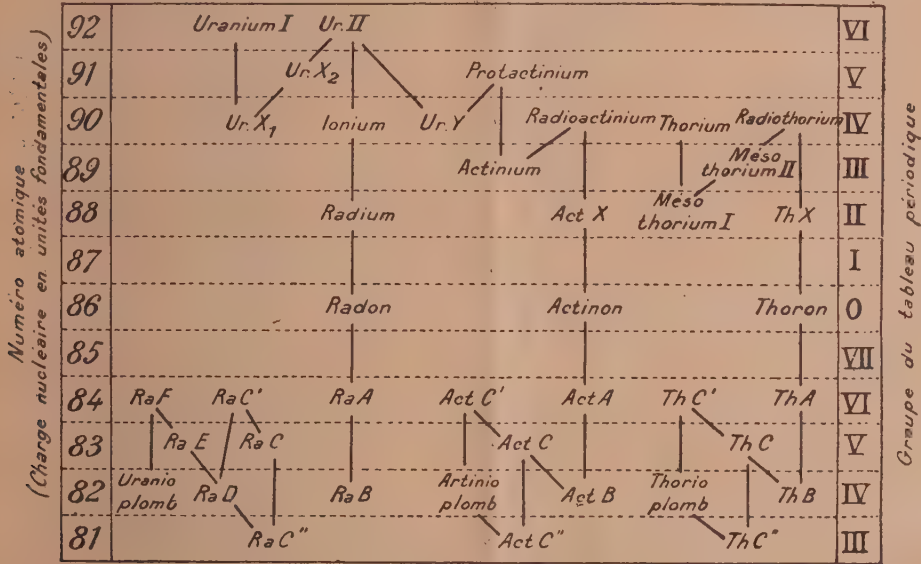 Numéro atomique
(Charge nucléaire en unités fondamentales)
92 Uranium I Ur. II VI
91 Ur. X2 Protactinium V
90 Ur. X1 Ionium Ur. Y Radioactinium Thorium Radiothorium IV
89 Actinium Méso thorium II III
88 Radium Act X Méso thorium I Th X II
87 I
86 Radon Actinon Thoron 0
85 VII
84 Ra F Ra C' Ra A Act C' Act A Th C' Th A VI
83 Ra E Ra C Act C Th C V
82 Uranio plomb Ra D Ra B Artinio plomb Act B Thorio plomb Th B IV
81 Ra C" Act C" Th C" III
Groupe du tableau périodique